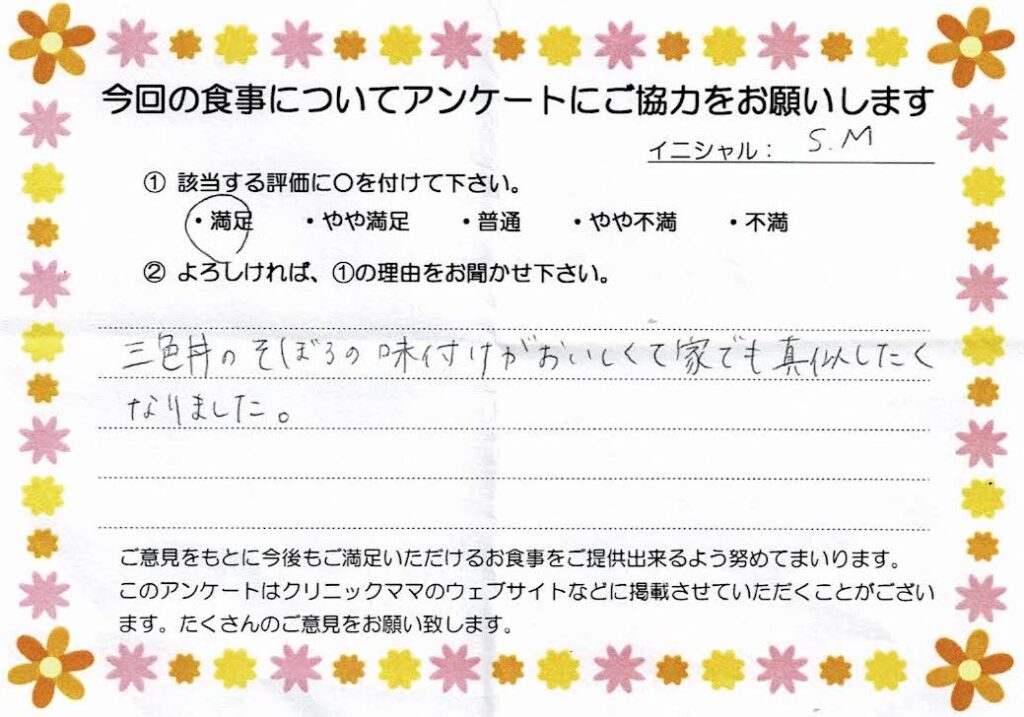 今回の食事についてアンケートにご協力をお願いします
イニシャル： S.M
① 該当する評価に〇を付けて下さい。
・満足 ・やや満足 ・普通 ・やや不満 ・不満
② よろしければ、①の理由をお聞かせ下さい。
三色丼のそぼろの味付けがおいしくて家でも真似したく
なりました。
ご意見をもとに今後もご満足いただけるお食事をご提供出来るよう努めてまいります。
このアンケートはクリニックママのウェブサイトなどに掲載させていただくことがござい
ます。たくさんのご意見をお願い致します。